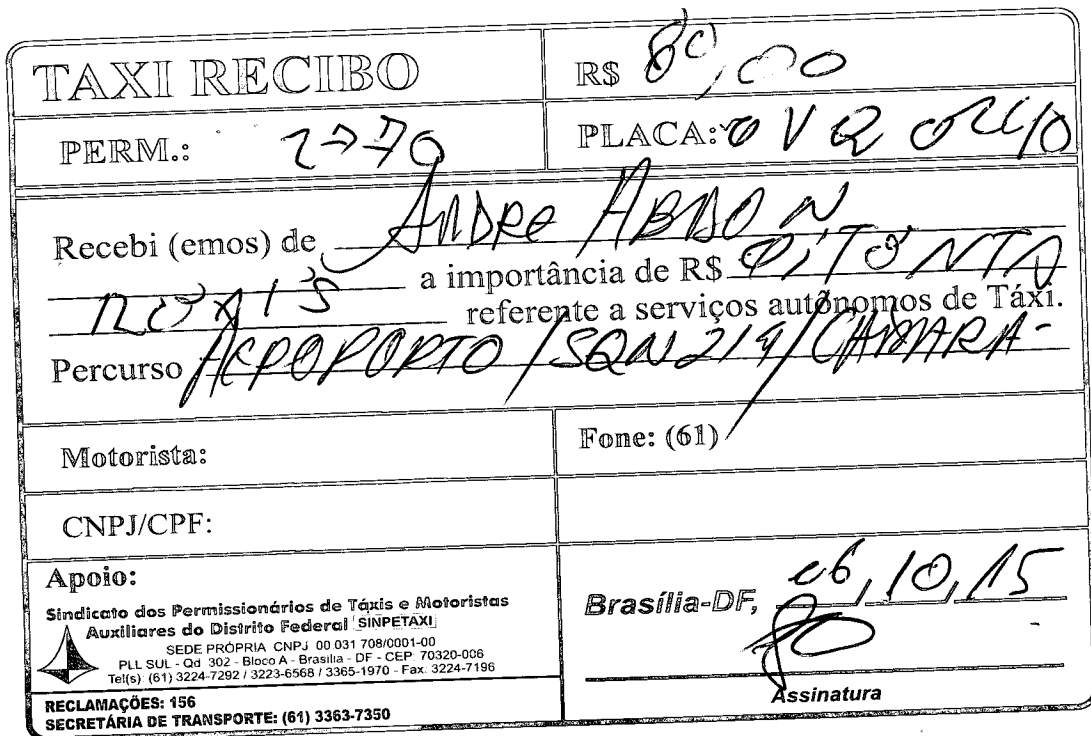 TAXI RECIBO
R$ 80,00
PERM.: 2770
PLACA: OVQ 0240
Recebi (emos) de ANDRE ABDON
a importância de R$ OITONTA
referente a serviços autônomos de Táxi.
Percurso AEROPORTO / SQN 214 / CAMARA-
Motorista:
Fone: (61)
CNPJ/CPF:
Apoio:
Sindicato dos Permissionários de Táxis e Motoristas
Auxiliares do Distrito Federal SINPETAXI
SEDE PRÓPRIA CNPJ 00 031 708/0001-00
PLL SUL - Qd 302 - Bloco A - Brasília - DF - CEP 70320-006
Tel(s) (61) 3224-7292 / 3223-6568 / 3365-1970 - Fax: 3224-7196
RECLAMAÇÕES: 156
SECRETÁRIA DE TRANSPORTE: (61) 3363-7350
Brasília-DF, 06, 10, 15
Assinatura